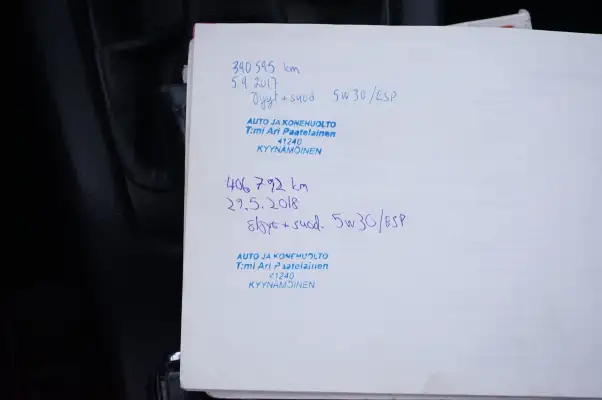 390 595 km
5.9.2017
Öljyt + suod. 5w30/ESP
AUTO JA KONEHUOLTO
T:mi Ari Paatelainen
41240
KYYNÄMÖINEN
406 792 km
29.5.2018
öljyt + suod. 5w30/ESP
AUTO JA KONEHUOLTO
T:mi Ari Paatelainen
41240
KYYNÄMÖINEN